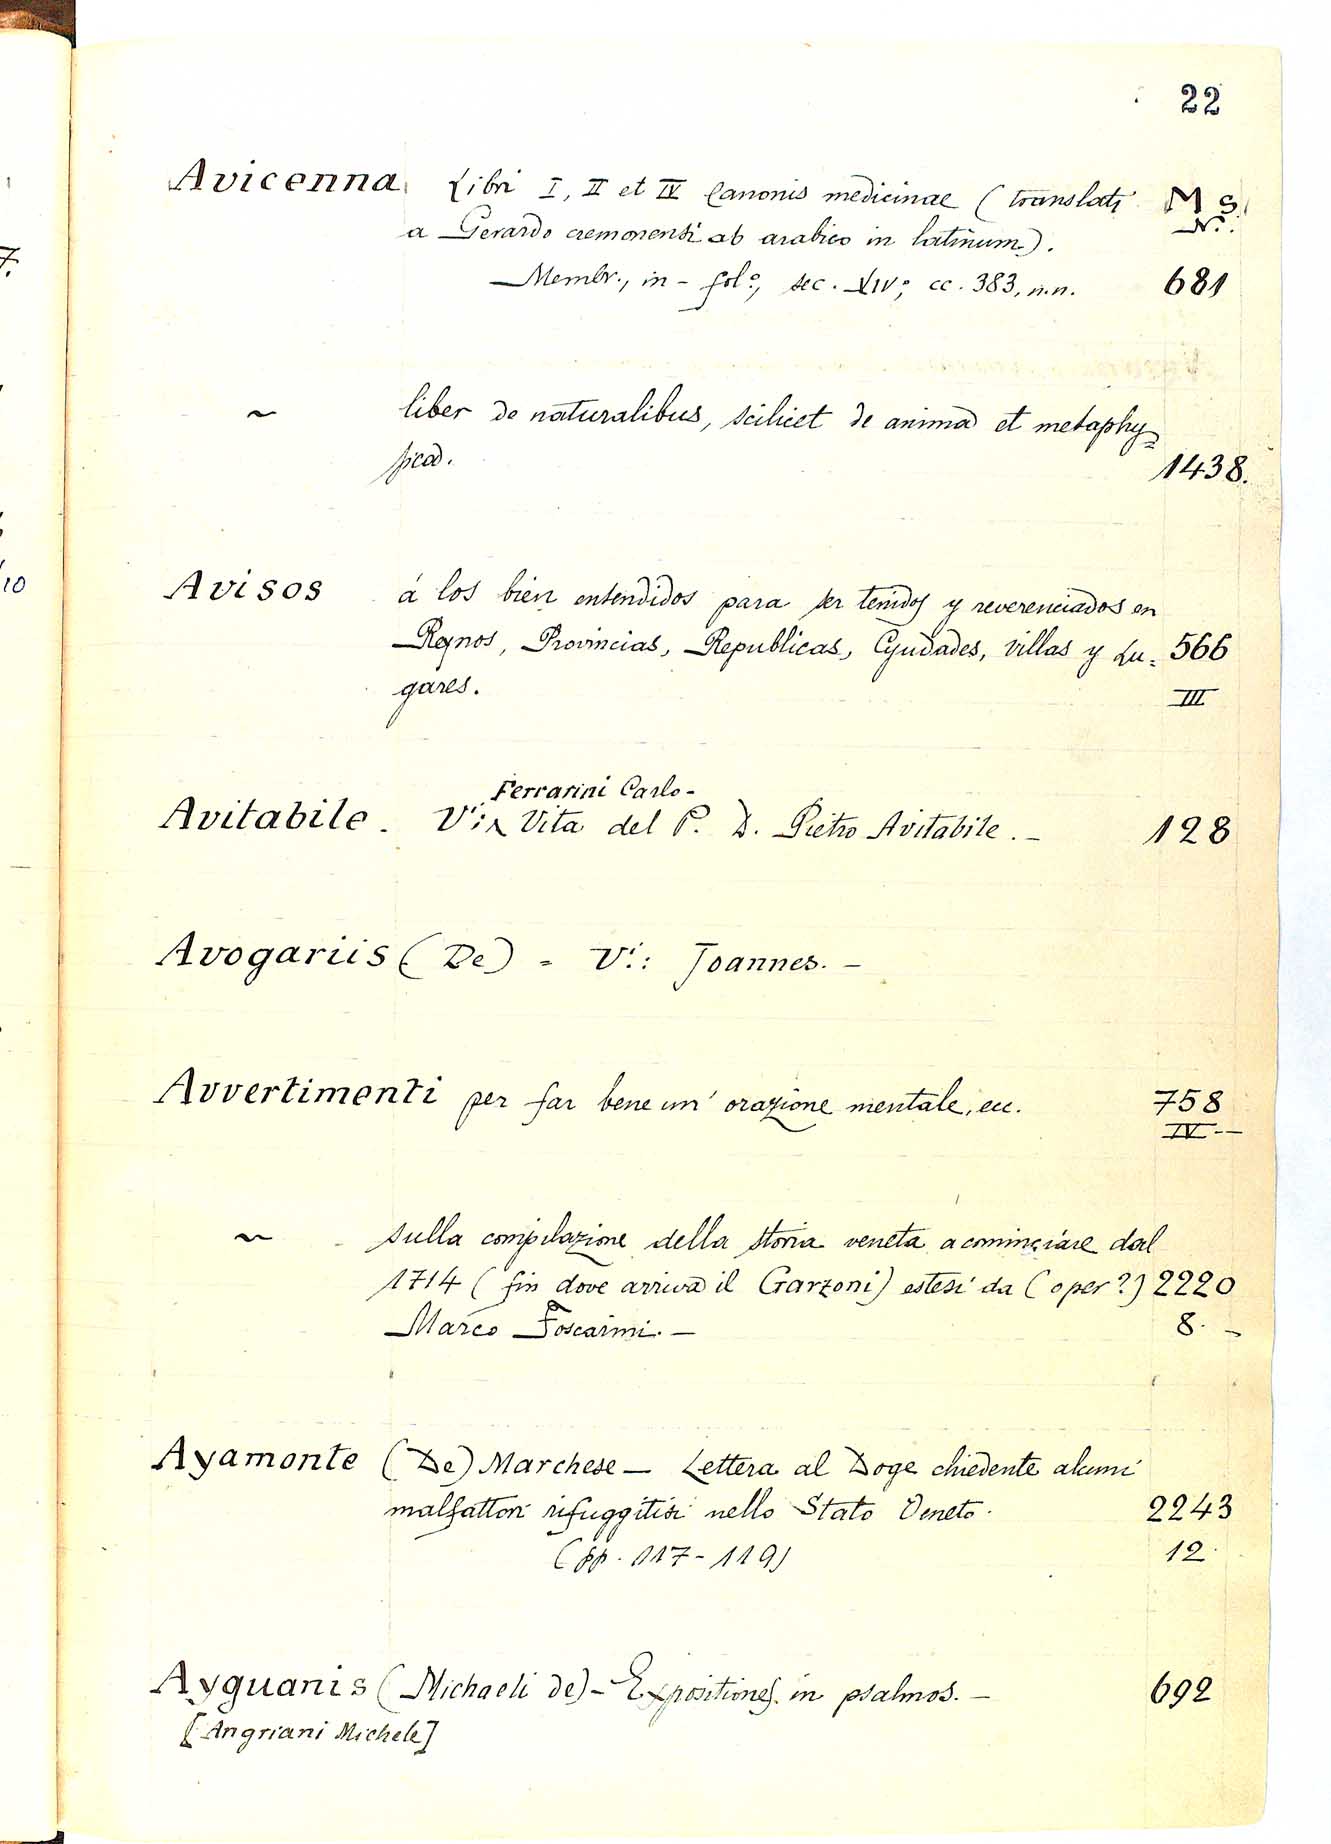 22
Avicenna Libri I, II et IV Canonis medicinae (translati M S.
a Gerardo cremonensi ab arabico in latinum). N.º
Membr., in-fol.º, sec. XIV.º, cc. 383, n.n. 681
~ liber de naturalibus, scilicet de anima et metaphy=
sica. 1438.
Avisos á los bien entendidos para ser tenidos y reverenciados en
Reynos, Provincias, Republicas, Cyudades, villas y Lu= 566
gares. III
Ferrarini Carlo-
Avitabile. V: Vita del P. D. Pietro Avitabile. - 128
Avogariis (De) = V.: Joannes. -
Avvertimenti per far bene un' orazione mentale, ecc. 758
IV --
~ sulla compilazione della storia veneta a cominciare dal
1714 (fin dove arriva il Garzoni) estesi da (o per?) 2220
Marco Foscarini. - 8. -
Ayamonte (De) Marchese - Lettera al Doge chiedente alcuni
malfattori rifuggitisi nello Stato Veneto. 2243
(pp. 117-119) 12.
Ayguanis (Michaeli de) - Expositiones in psalmos. - 692
[Angriani Michele]
7.
10